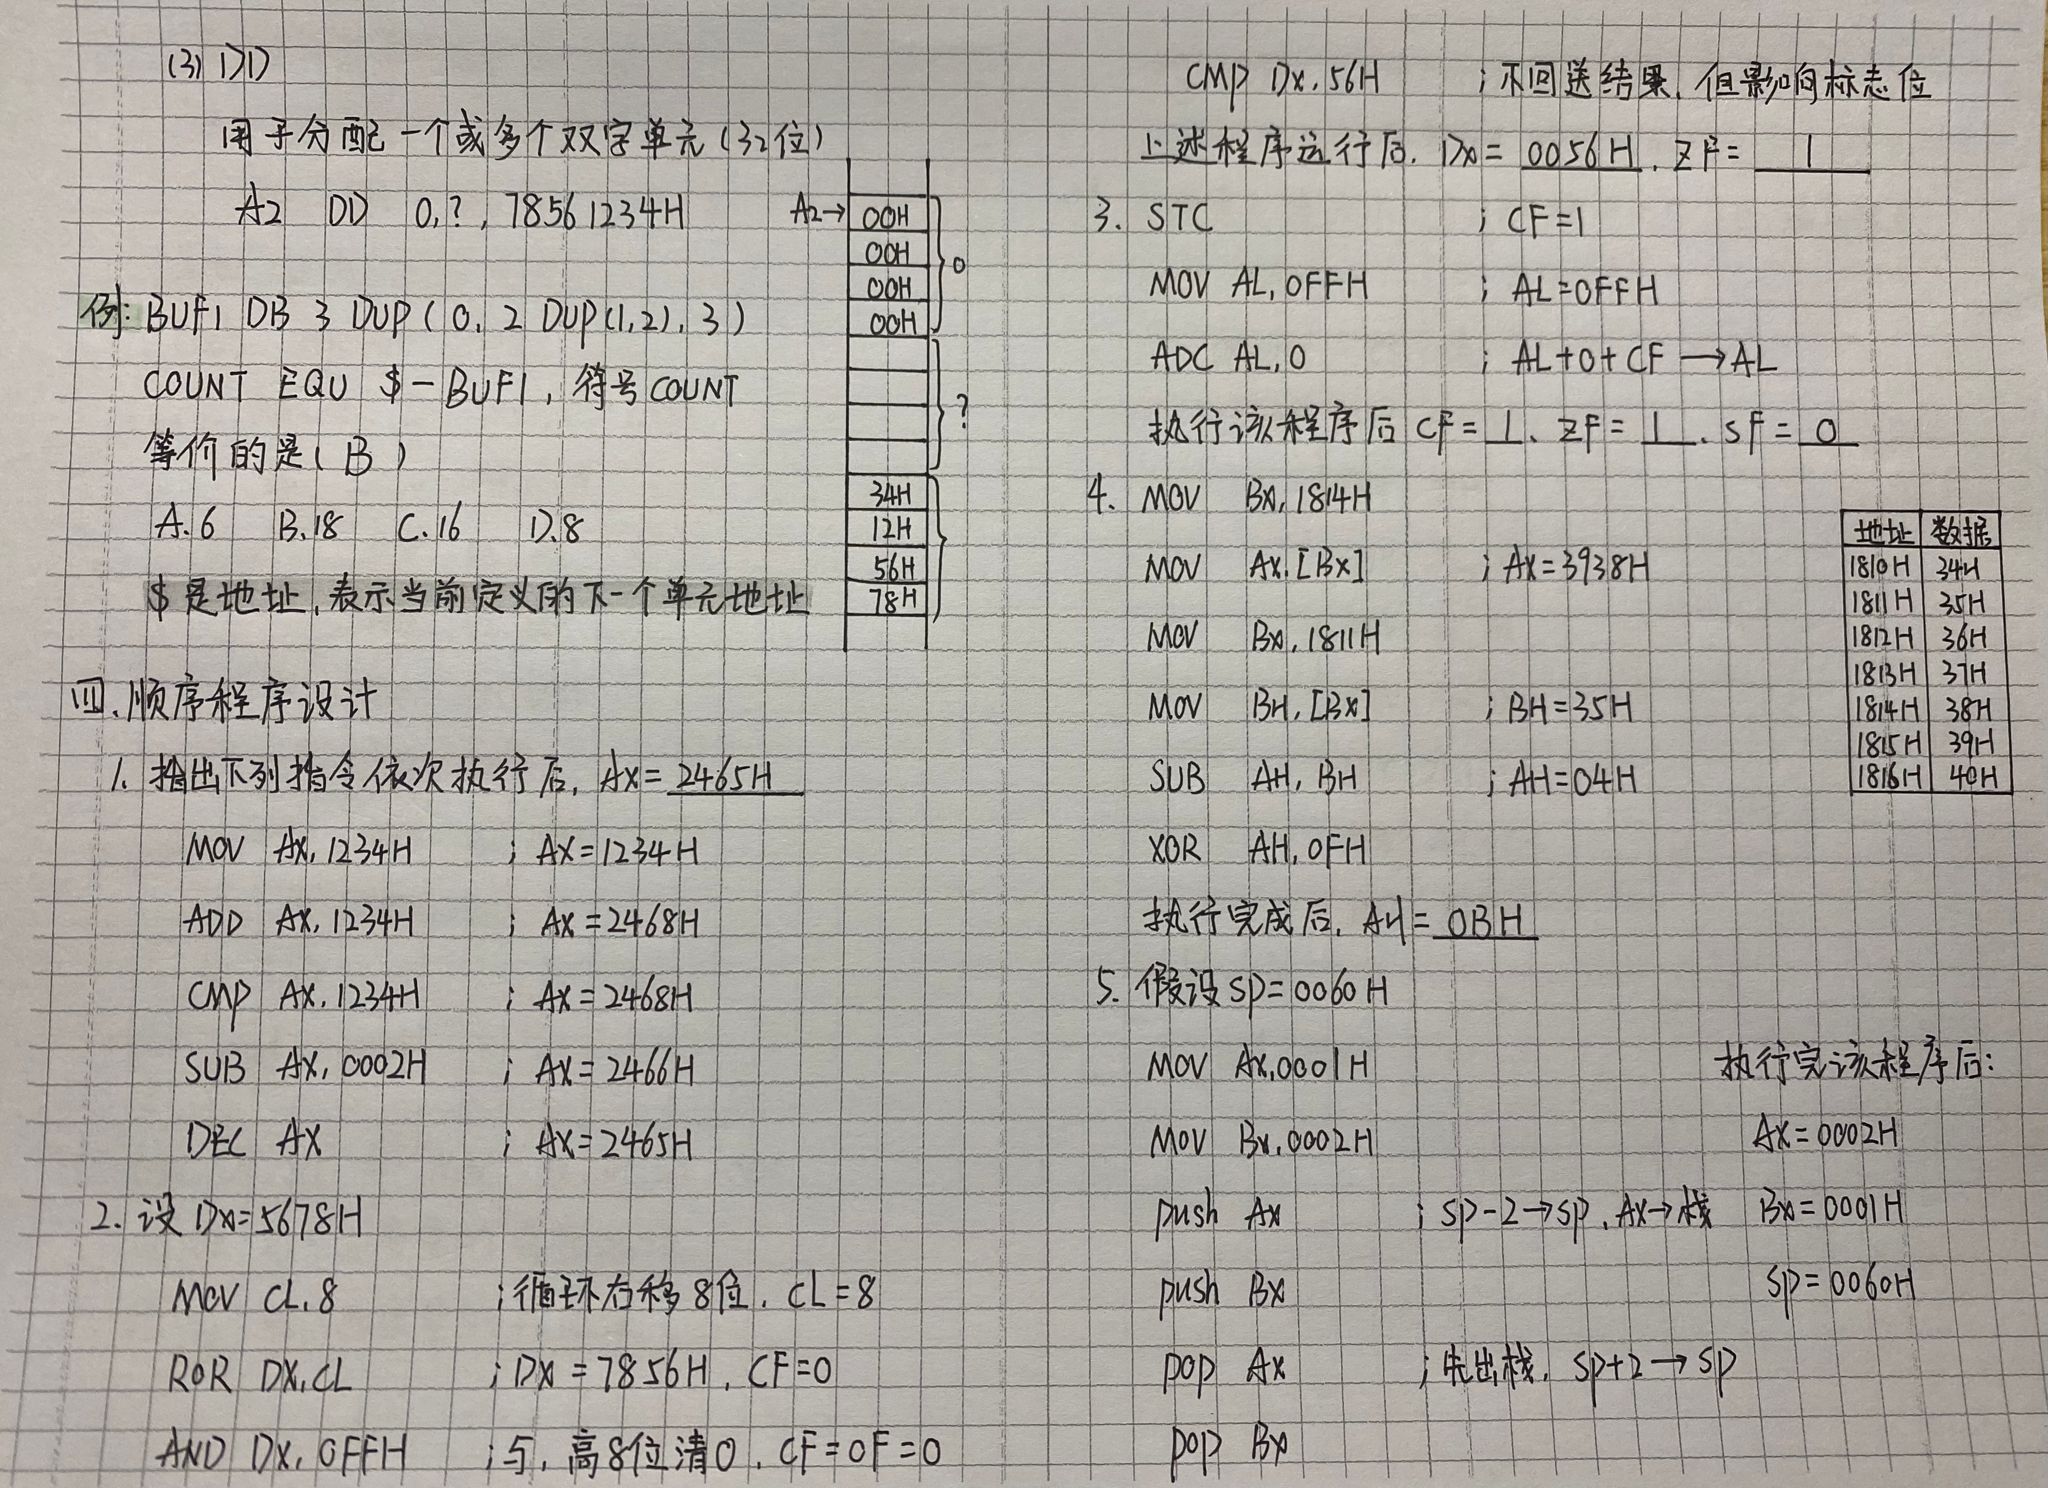 (3) DD
用于分配一个或多个双字单元(32位)
A2 DD 0,?,78561234H
A2→ 00H
00H
00H
00H
0
?
34H
12H
56H
78H
例: BUF1 DB 3 DUP(0, 2 DUP(1,2), 3)
COUNT EQU $-BUF1, 符号COUNT
等价的是( B )
A.6 B.18 C.16 D.8
$是地址,表示当前定义的下一个单元地址
四.顺序程序设计
1. 指出下列指令依次执行后, AX= 2465H
MOV AX, 1234H ; AX=1234H
ADD AX, 1234H ; AX=2468H
CMP AX, 1234H ; AX=2468H
SUB AX, 0002H ; AX=2466H
DEC AX ; AX=2465H
2. 设DX=5678H
MOV CL, 8 ;循环右移8位, CL=8
ROR DX, CL ; DX=7856H, CF=0
AND DX, 0FFH ;与, 高8位清0, CF=OF=0
CMP DX, 56H ;不回送结果, 但影响标志位
上述程序运行后, DX= 0056H, ZF= 1
3. STC ; CF=1
MOV AL, 0FFH ; AL=0FFH
ADC AL, 0 ; AL+0+CF→AL
执行该程序后 CF= 1, ZF= 1, SF= 0
4. MOV BX, 1814H
MOV AX, [BX] ; AX=3938H
MOV BX, 1811H
MOV BH, [BX] ; BH=35H
SUB AH, BH ; AH=04H
XOR AH, 0FH
执行完成后, AH= 0BH
地址 数据
1810H 34H
1811H 35H
1812H 36H
1813H 37H
1814H 38H
1815H 39H
1816H 40H
5. 假设SP=0060H
MOV AX, 0001H
MOV BX, 0002H
push AX ; SP-2→SP, AX→栈
push BX
pop AX ;先出栈, SP+2→SP
pop BX
执行完该程序后:
AX=0002H
BX=0001H
SP=0060H